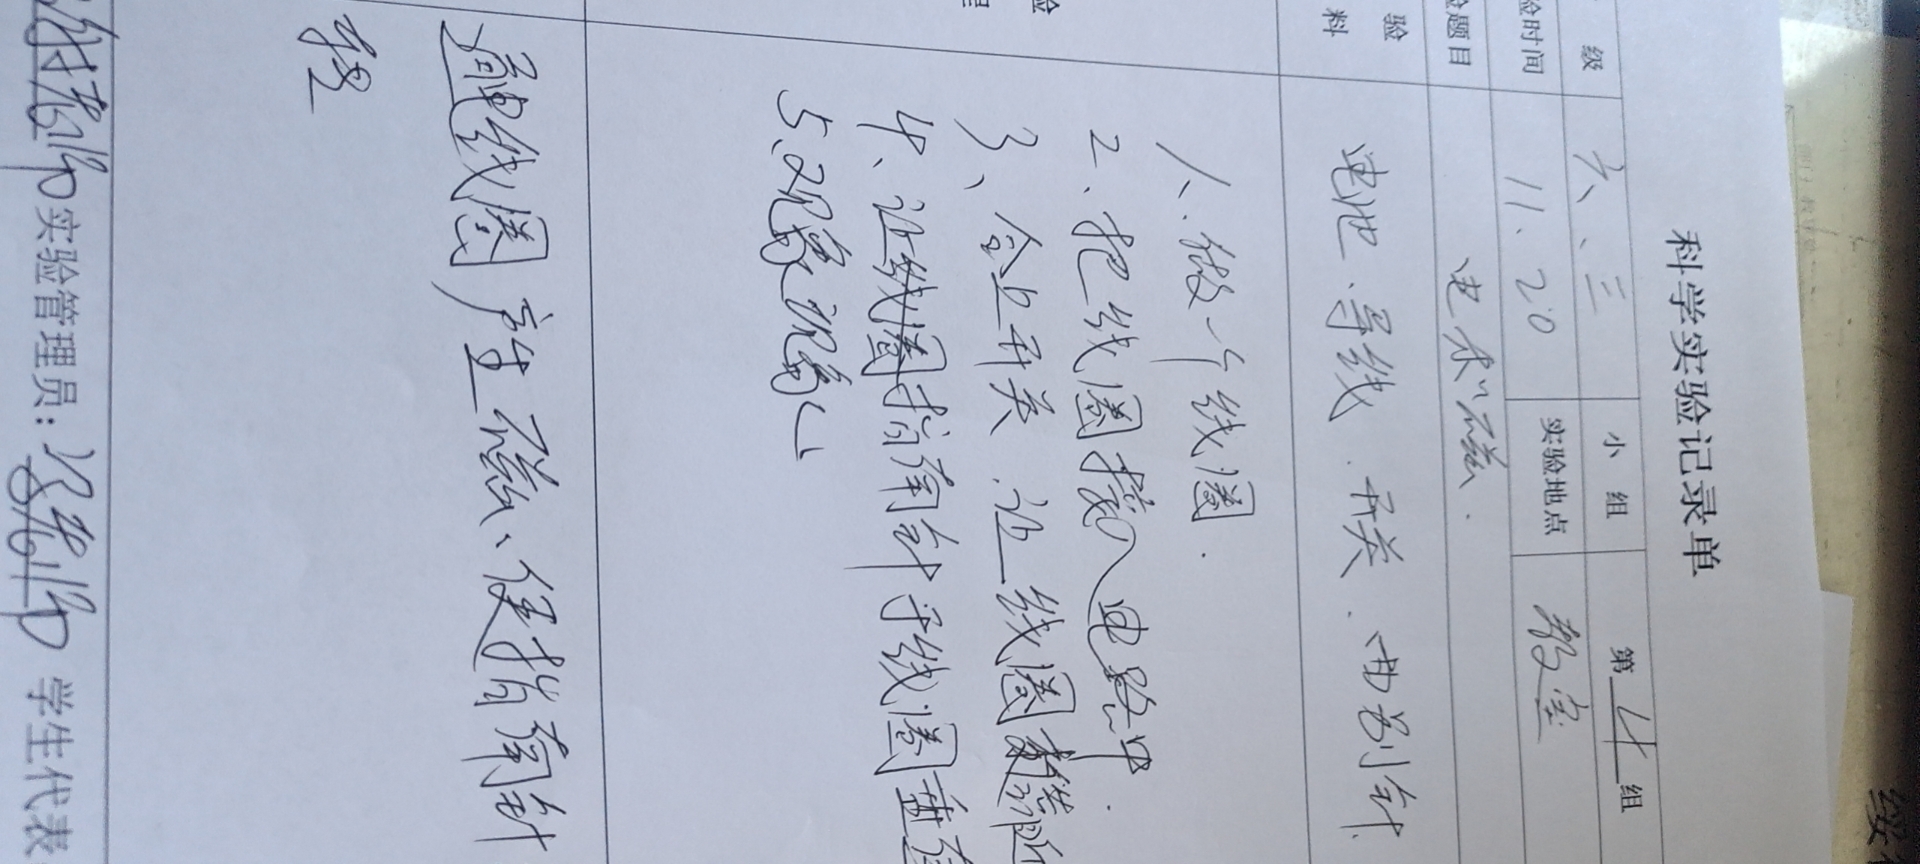 科学实验记录单
级 六、三 小组 第七组
验时间 11.20 实验地点 教室
验题目 电和磁.
验料 电池.导线.开关.曲别针
1.做个线圈.
2、把线圈接入电路中.
3、合上开关.让线圈靠近
4、让线圈指南针于线圈垂直
5、观象现象
通电线圈产生磁、使指南针
实验管理员: 学生代表